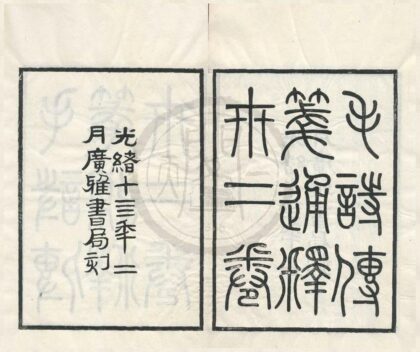 毛詩傳
箋通釋
卅二卷
光緒十三秊二
月廣雅書局刻